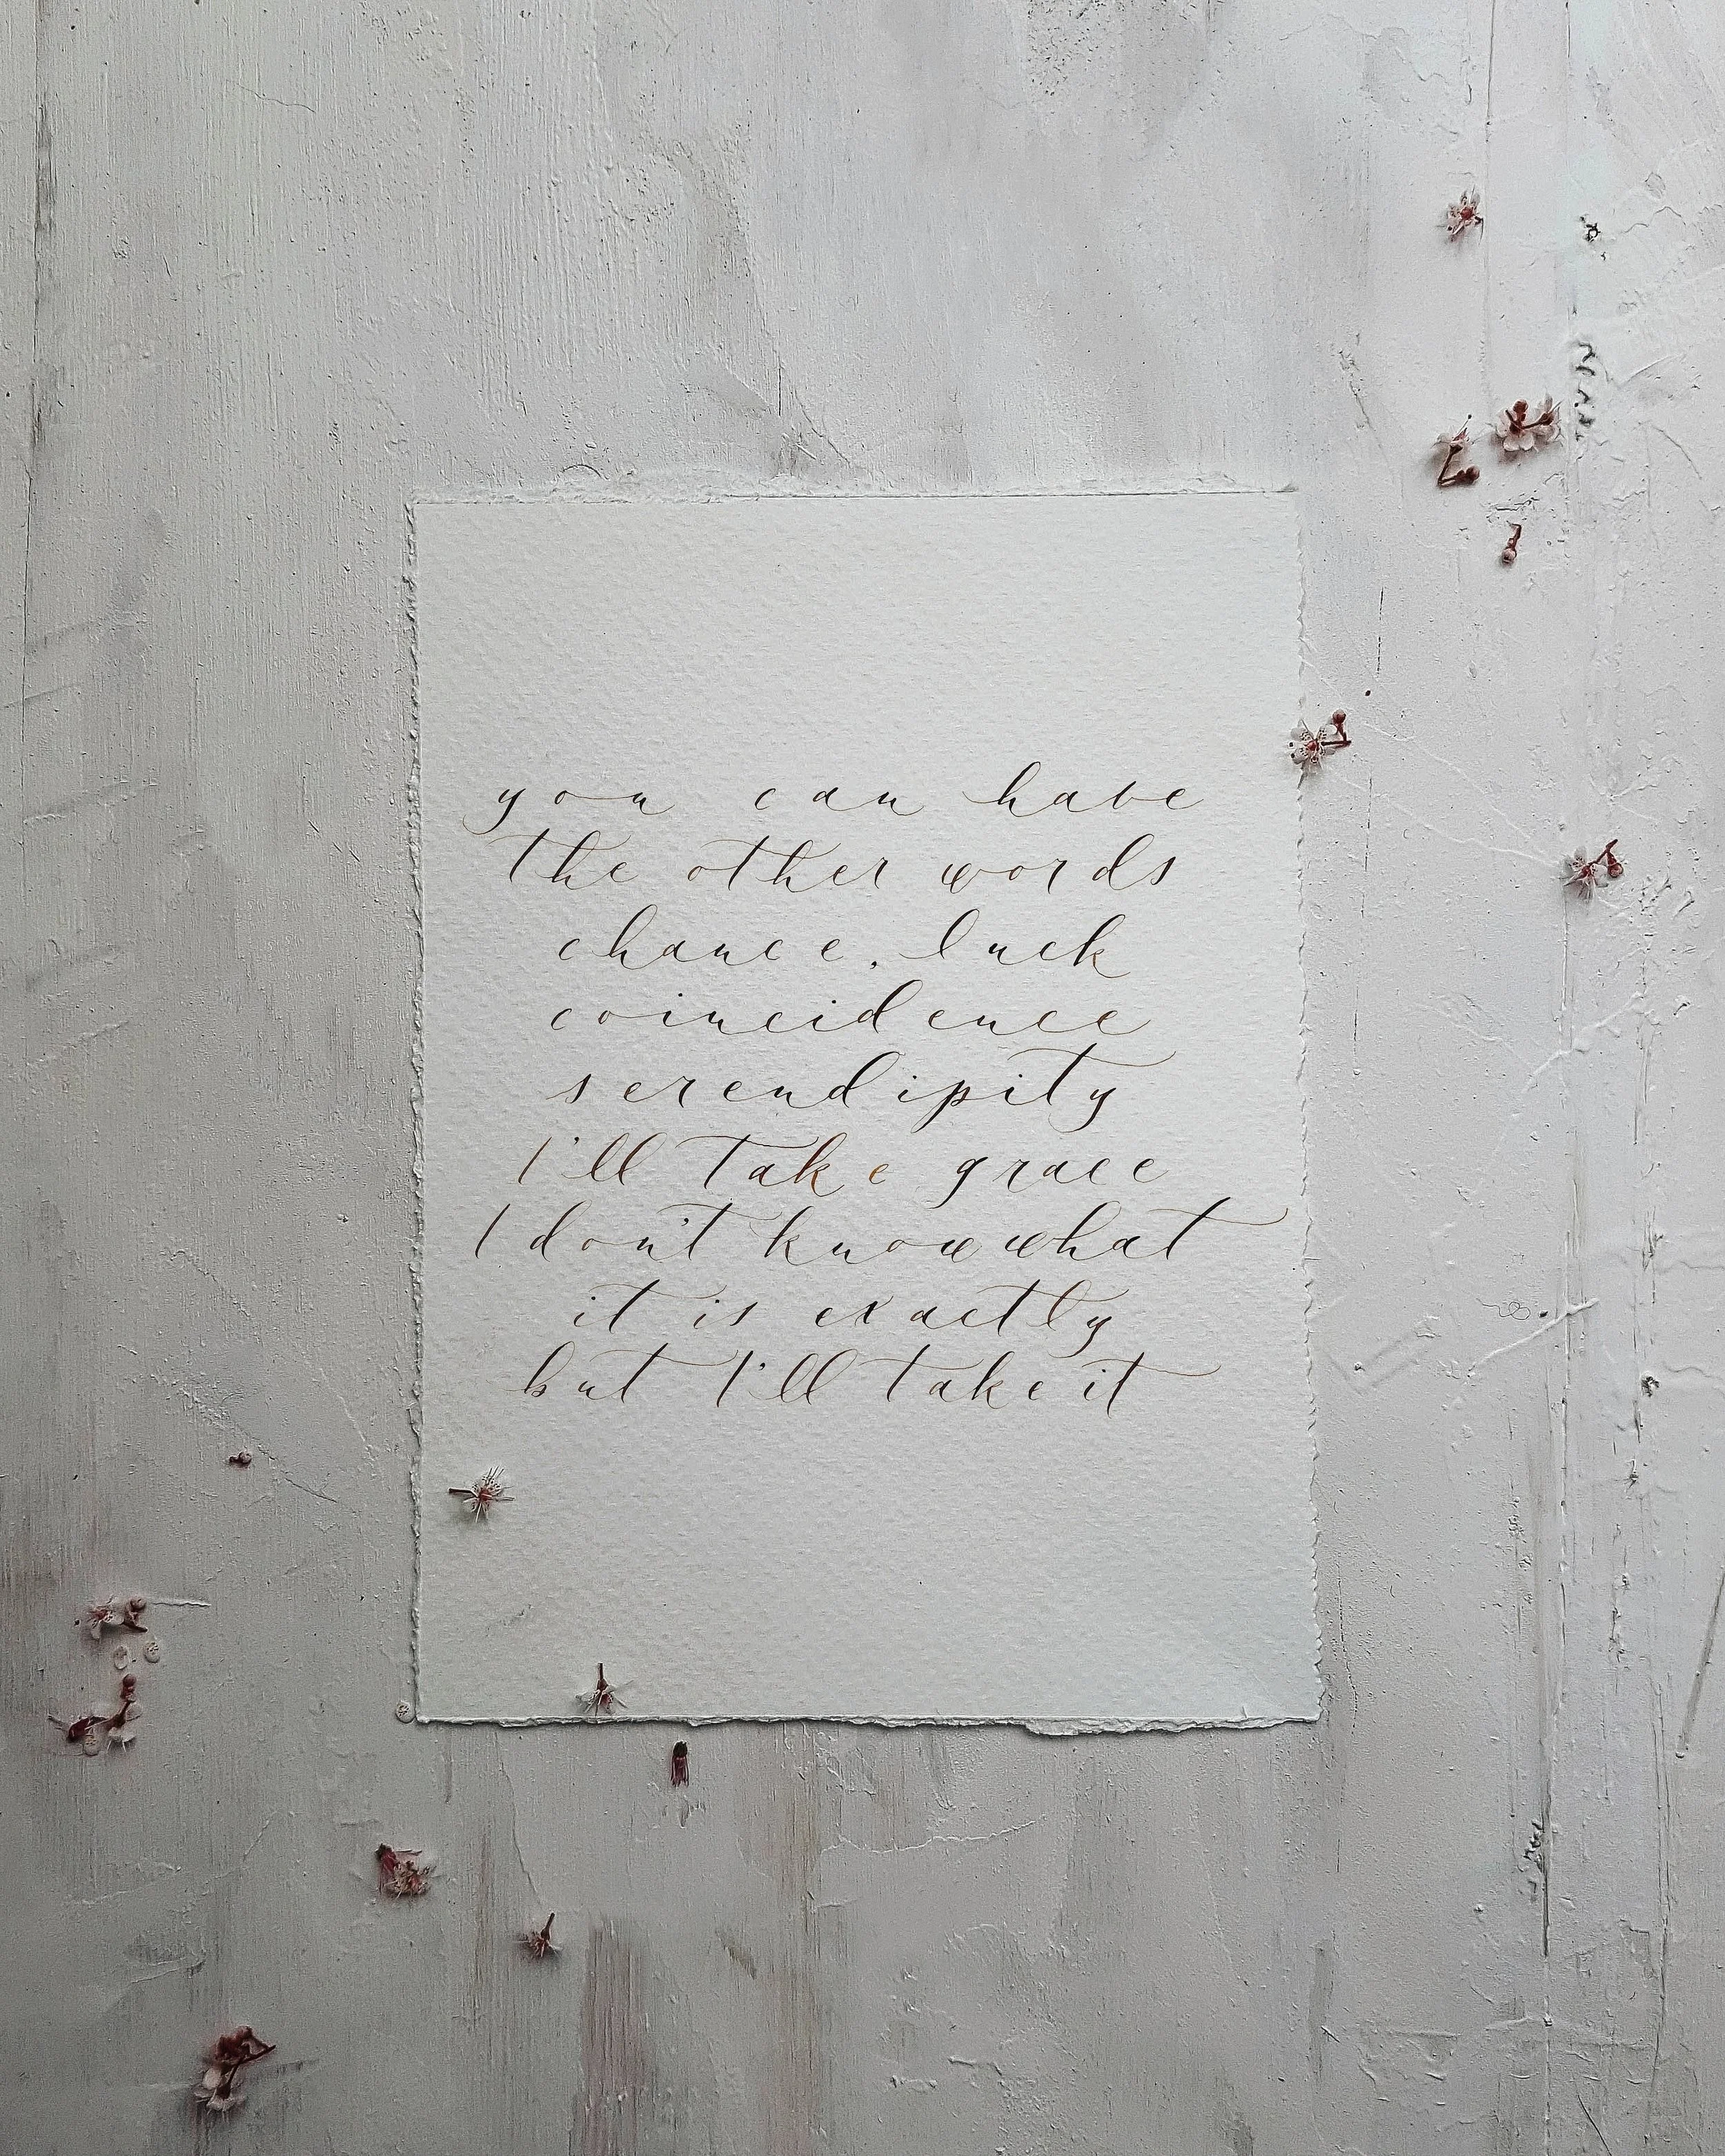 you can have
the other words
chance, luck
coincidence
serendipity
I'll take grace
I don't know what
it is exactly
but I'll take it